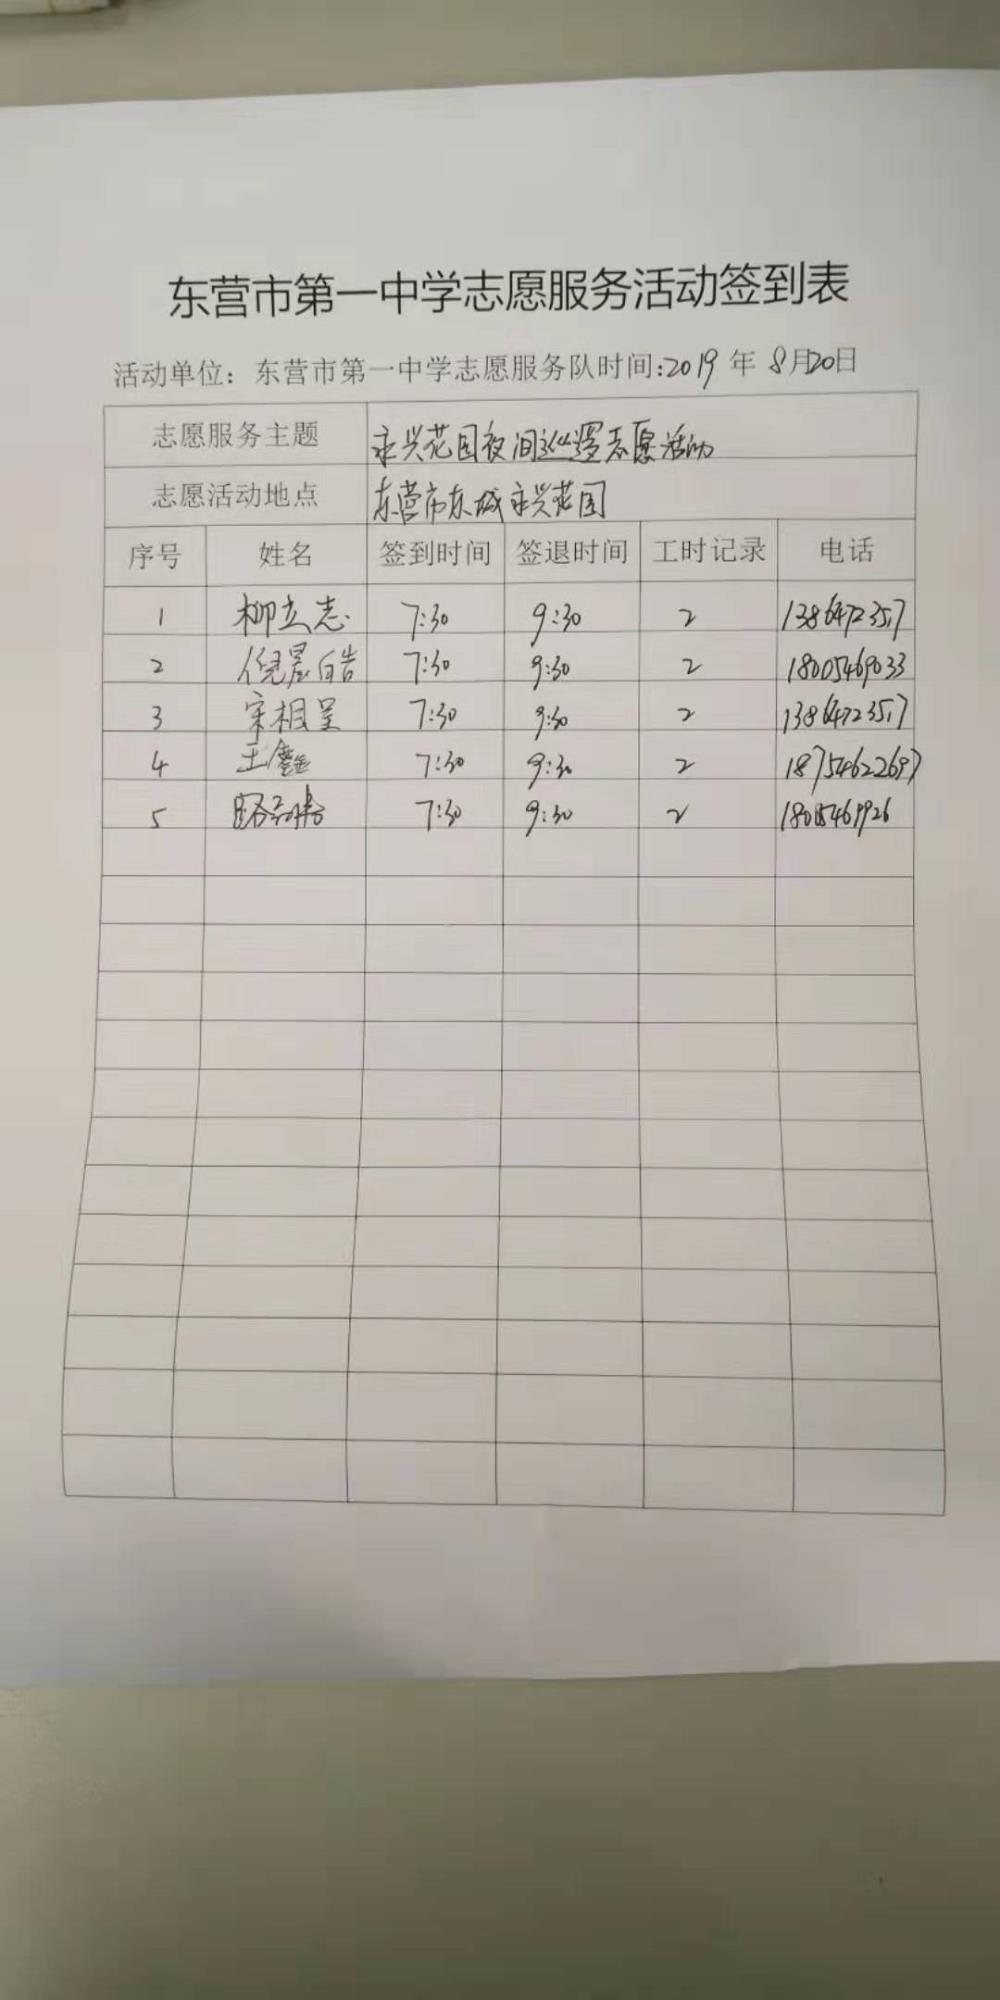 东营市第一中学志愿服务活动签到表
活动单位：东营市第一中学志愿服务队时间:2019 年 8月20日
志愿服务主题 永兴花园夜间巡逻志愿活动
志愿活动地点 东营市东城永兴花园
序号 姓名 签到时间 签退时间 工时记录 电话
1 柳立志 7:30 9:30 2
2 倪晨皓 7:30 9:30 2 18005469033
3 宋相呈 7:30 9:30 2
4 王鑫 7:30 9:30 2 18754622697
5 7:30 9:30 2